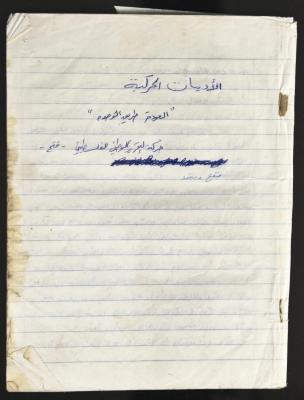 الأدبيات الحركية
"العودة طريق الوحدة"
حركة التحرير الوطني الفلسطيني - فتح -